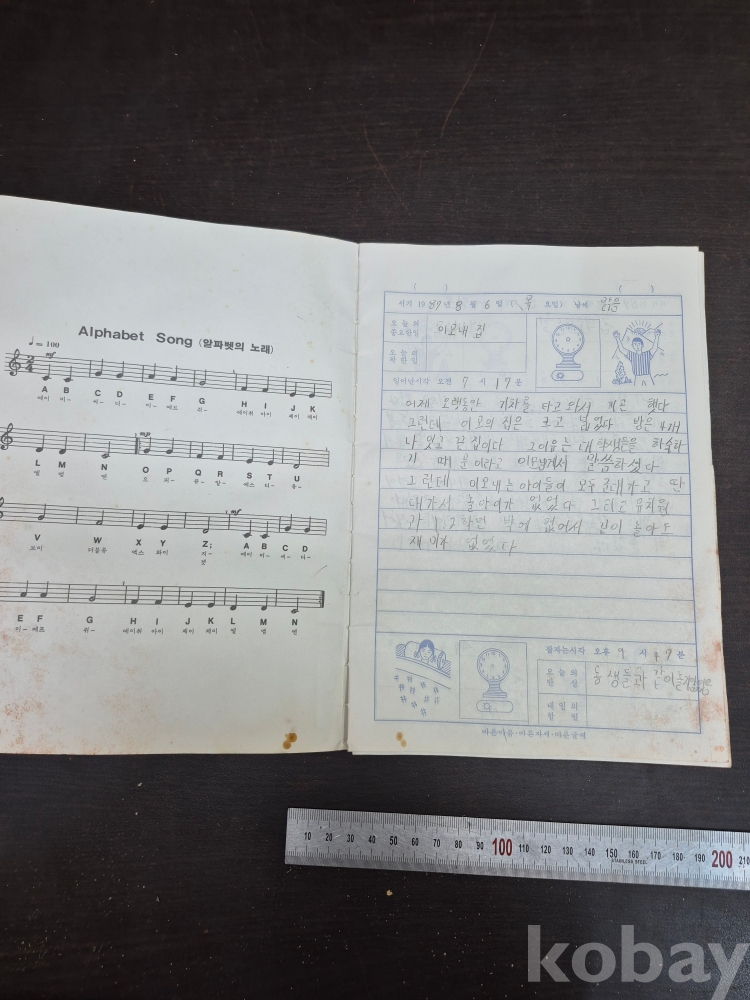 Alphabet Song (알파벳의 노래)
♩= 100
mf
2/4
A B C D E F G H I J K
에이 비- 씨- 디- 이- 에프 쥐- 에이취 아이 제이 케이
L M N O P Q R S T U
엘 엠 엔 오 피- 큐- 알- 에스 티- 유-
mf
V W X Y Z; A B C D
브이 더블유 엑스 와이 지- 에이 비- 씨- 디-
mf
E F G H I J K L M N
이- 에프 쥐- 에이취 아이 제이 케이 엘 엠 엔
( ) ( )
서기 19 89 년 8 월 6 일 ( 목 요일) 날씨 맑음
오늘의 중요한일 이모네 집
오늘의 착한일
일어난시각 오전 7 시 17 분
어제 오랫동안 기차를 타고 와서 피곤 했다
그런데 이모의 집은 크고 넓었다 방은 4개
나 있고 큰 집이다 그이유는 대학생들을 하숙하
기 때문이라고 어머님께서 말씀하셨다
그런데 이모네는 아이들이 모두 군대가고 딴
대가서 놀아이가 없었다 그리고 유치원
과 1, 2학년 밖에 없어서 같이 놀아도
재미가 없었다
잠자는시각 오후 9 시 47 분
오늘의 반성 동생들과 같이
내일의 할일
바른마음·바른자세·바른글씨
10 20 30 40 50 60 70 80 90 100 110 120 130 140 150 160 170 180 190 200 210
STAINLESS STEEL
kobay